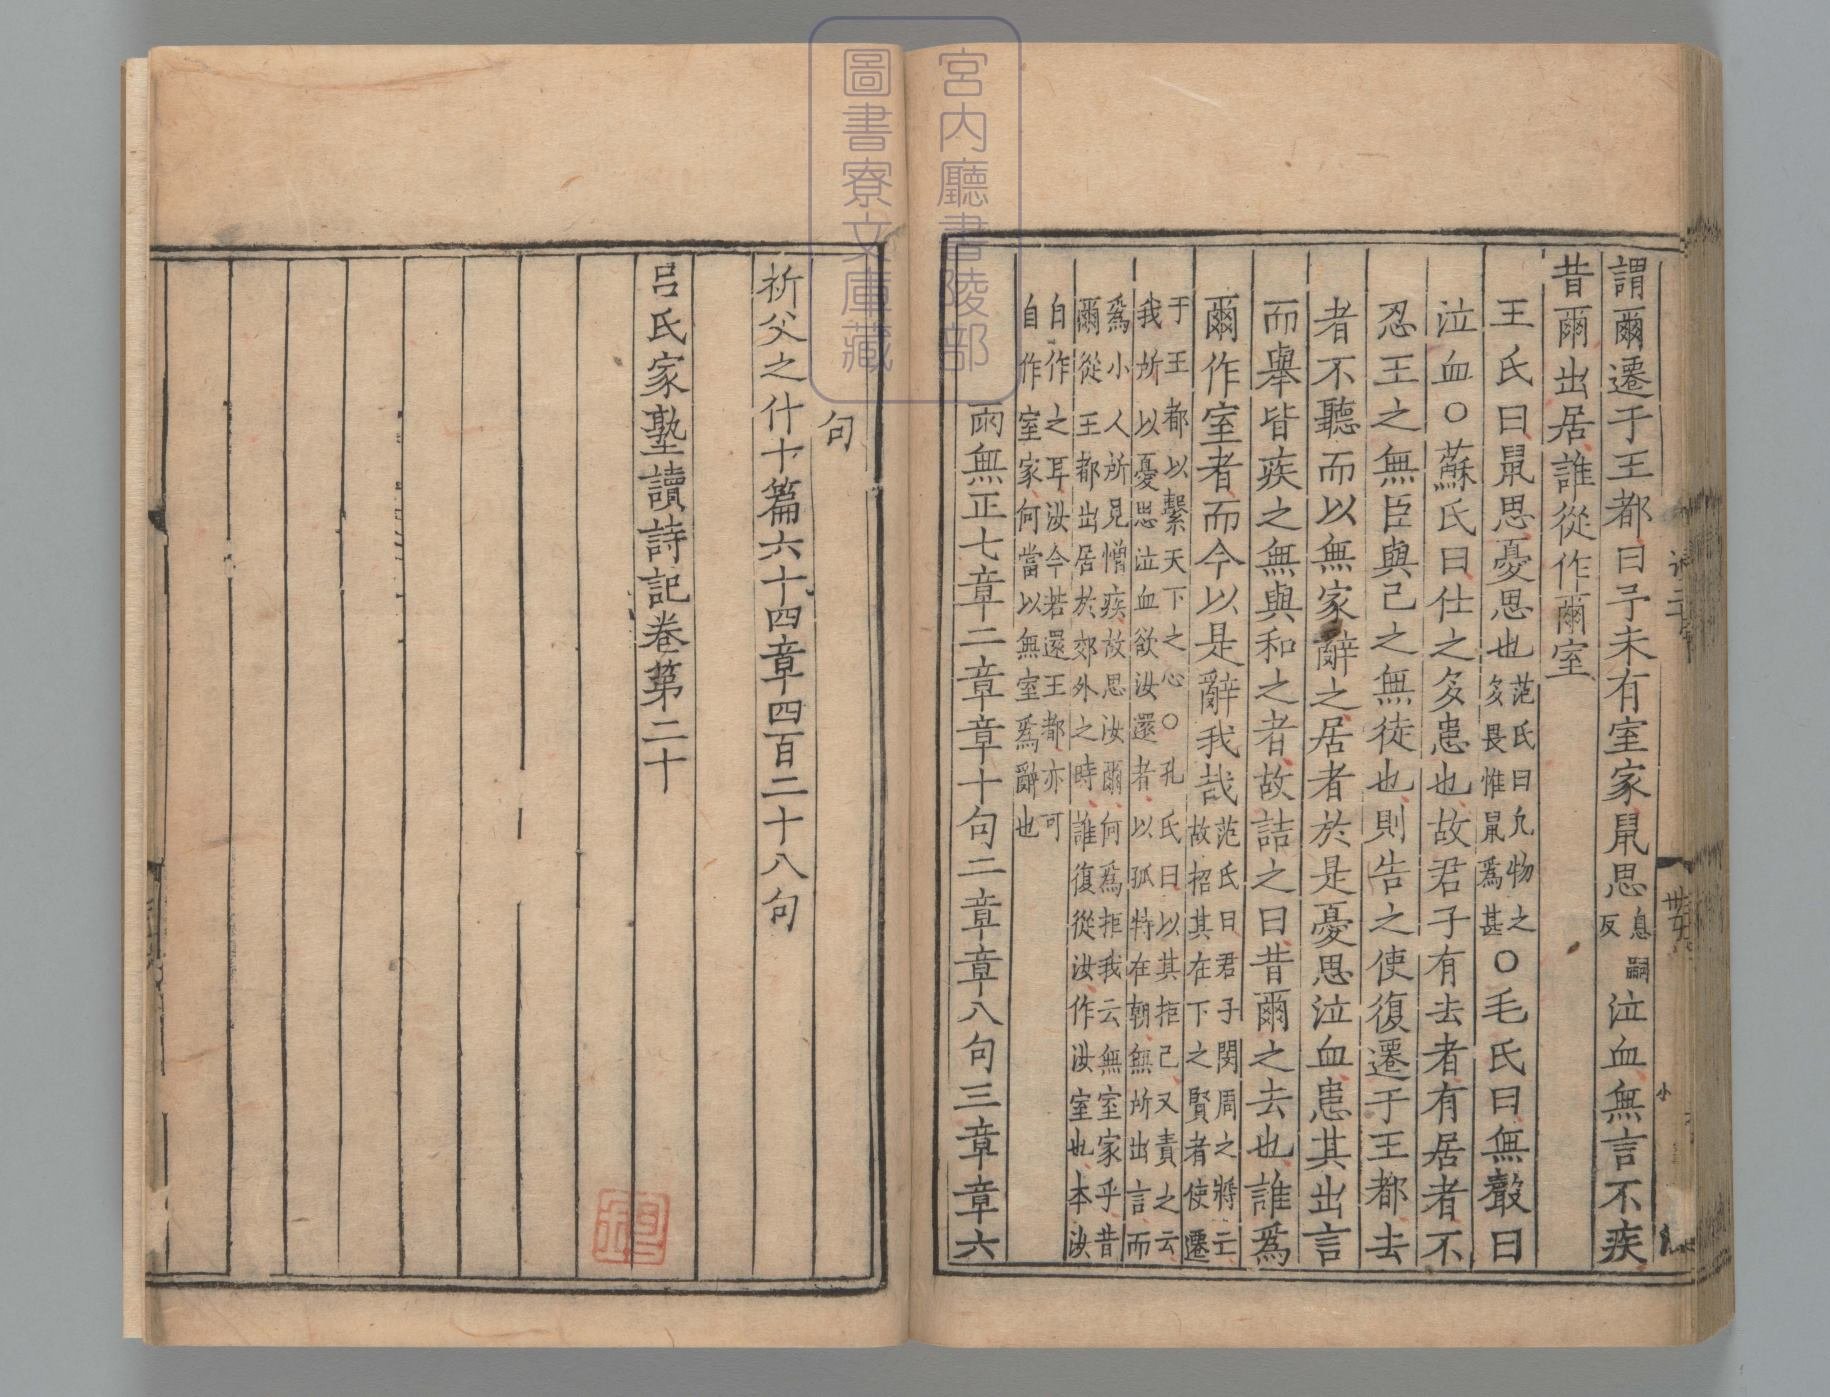 宮内廳書陵部
圖書寮文庫藏
謂爾遷于王都曰予未有室家鼠思息嗣反泣血無言不疾
昔爾出居誰從作爾室
王氏曰鼠思憂思也范氏曰凢物之多畏惟鼠爲甚○毛氏曰無聲曰
泣血○蘇氏曰仕之多患也故君子有去者有居者不
忍王之無臣與己之無徒也則告之使復遷于王都去
者不聽而以無家辭之居者於是憂思泣血患其出言
而舉皆疾之無與和之者故詰之曰昔爾之去也誰爲
爾作室者而今以是辭我哉范氏曰君子閔周之將亡故招其在下之賢者使遷
于王都以繫天下之心○孔氏曰以其拒己又責之云
我所以憂思泣血欲汝還者以孤特在朝無所出言而
爲小人所見憎疾故思汝爾何爲拒我云無室家乎昔
爾從王都出居於郊外之時誰復從汝作汝室也本汝
自作之耳汝今若還王都亦可
自作室家何當以無室爲辭也
雨無正七章二章章十句二章章八句三章章六
句
祈父之什十篇六十四章四百二十八句
呂氏家塾讀詩記卷第二十